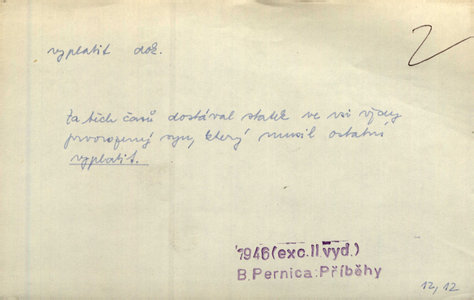 vyplatit dok.
Za těch časů dostával statek ve vsi vždy
prvorozený syn, který musil ostatní
vyplatit.
1946 (exc. II vyd.)
B. Pernica: Příběhy
12, 12